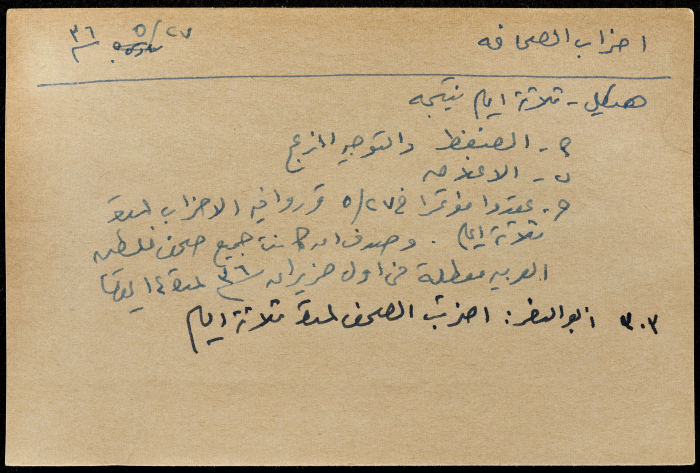 اضراب الصحافه ٥/٢٧ سنة ٣٦
هيكل - ثلاثة ايام نتيجه
٢ - الضغط والتوجيه المزعج
٥ - الاعلامه
٢ - عقدوا مؤتمرا في ٥/٢٧ قرروا فيه الاضراب لمدة
ثلاثة ايام . وصدف ان كانت جميع صحف فلسطين
العربيه معطلة من اول حزيران سنة ٣٦ لمدة ١٤ يوما
٣٠٢ ابو النصر : اضربت الصحف لمدة ثلاثة ايام